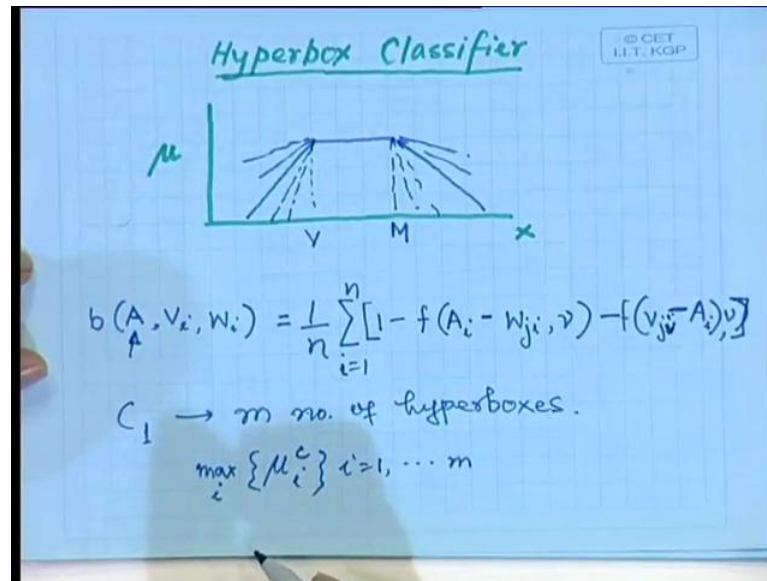 Hyperbox Classifier
© CET
I.I.T. KGP
μ
V M x
b(A, Vi, Wi) = 1/n Σ i=1 n [1 - f(Ai - Wji, ν) - f(Vji - Ai), ν]
A
C1 → m no. of hyperboxes.
max i {μi^c} i=1, ... m